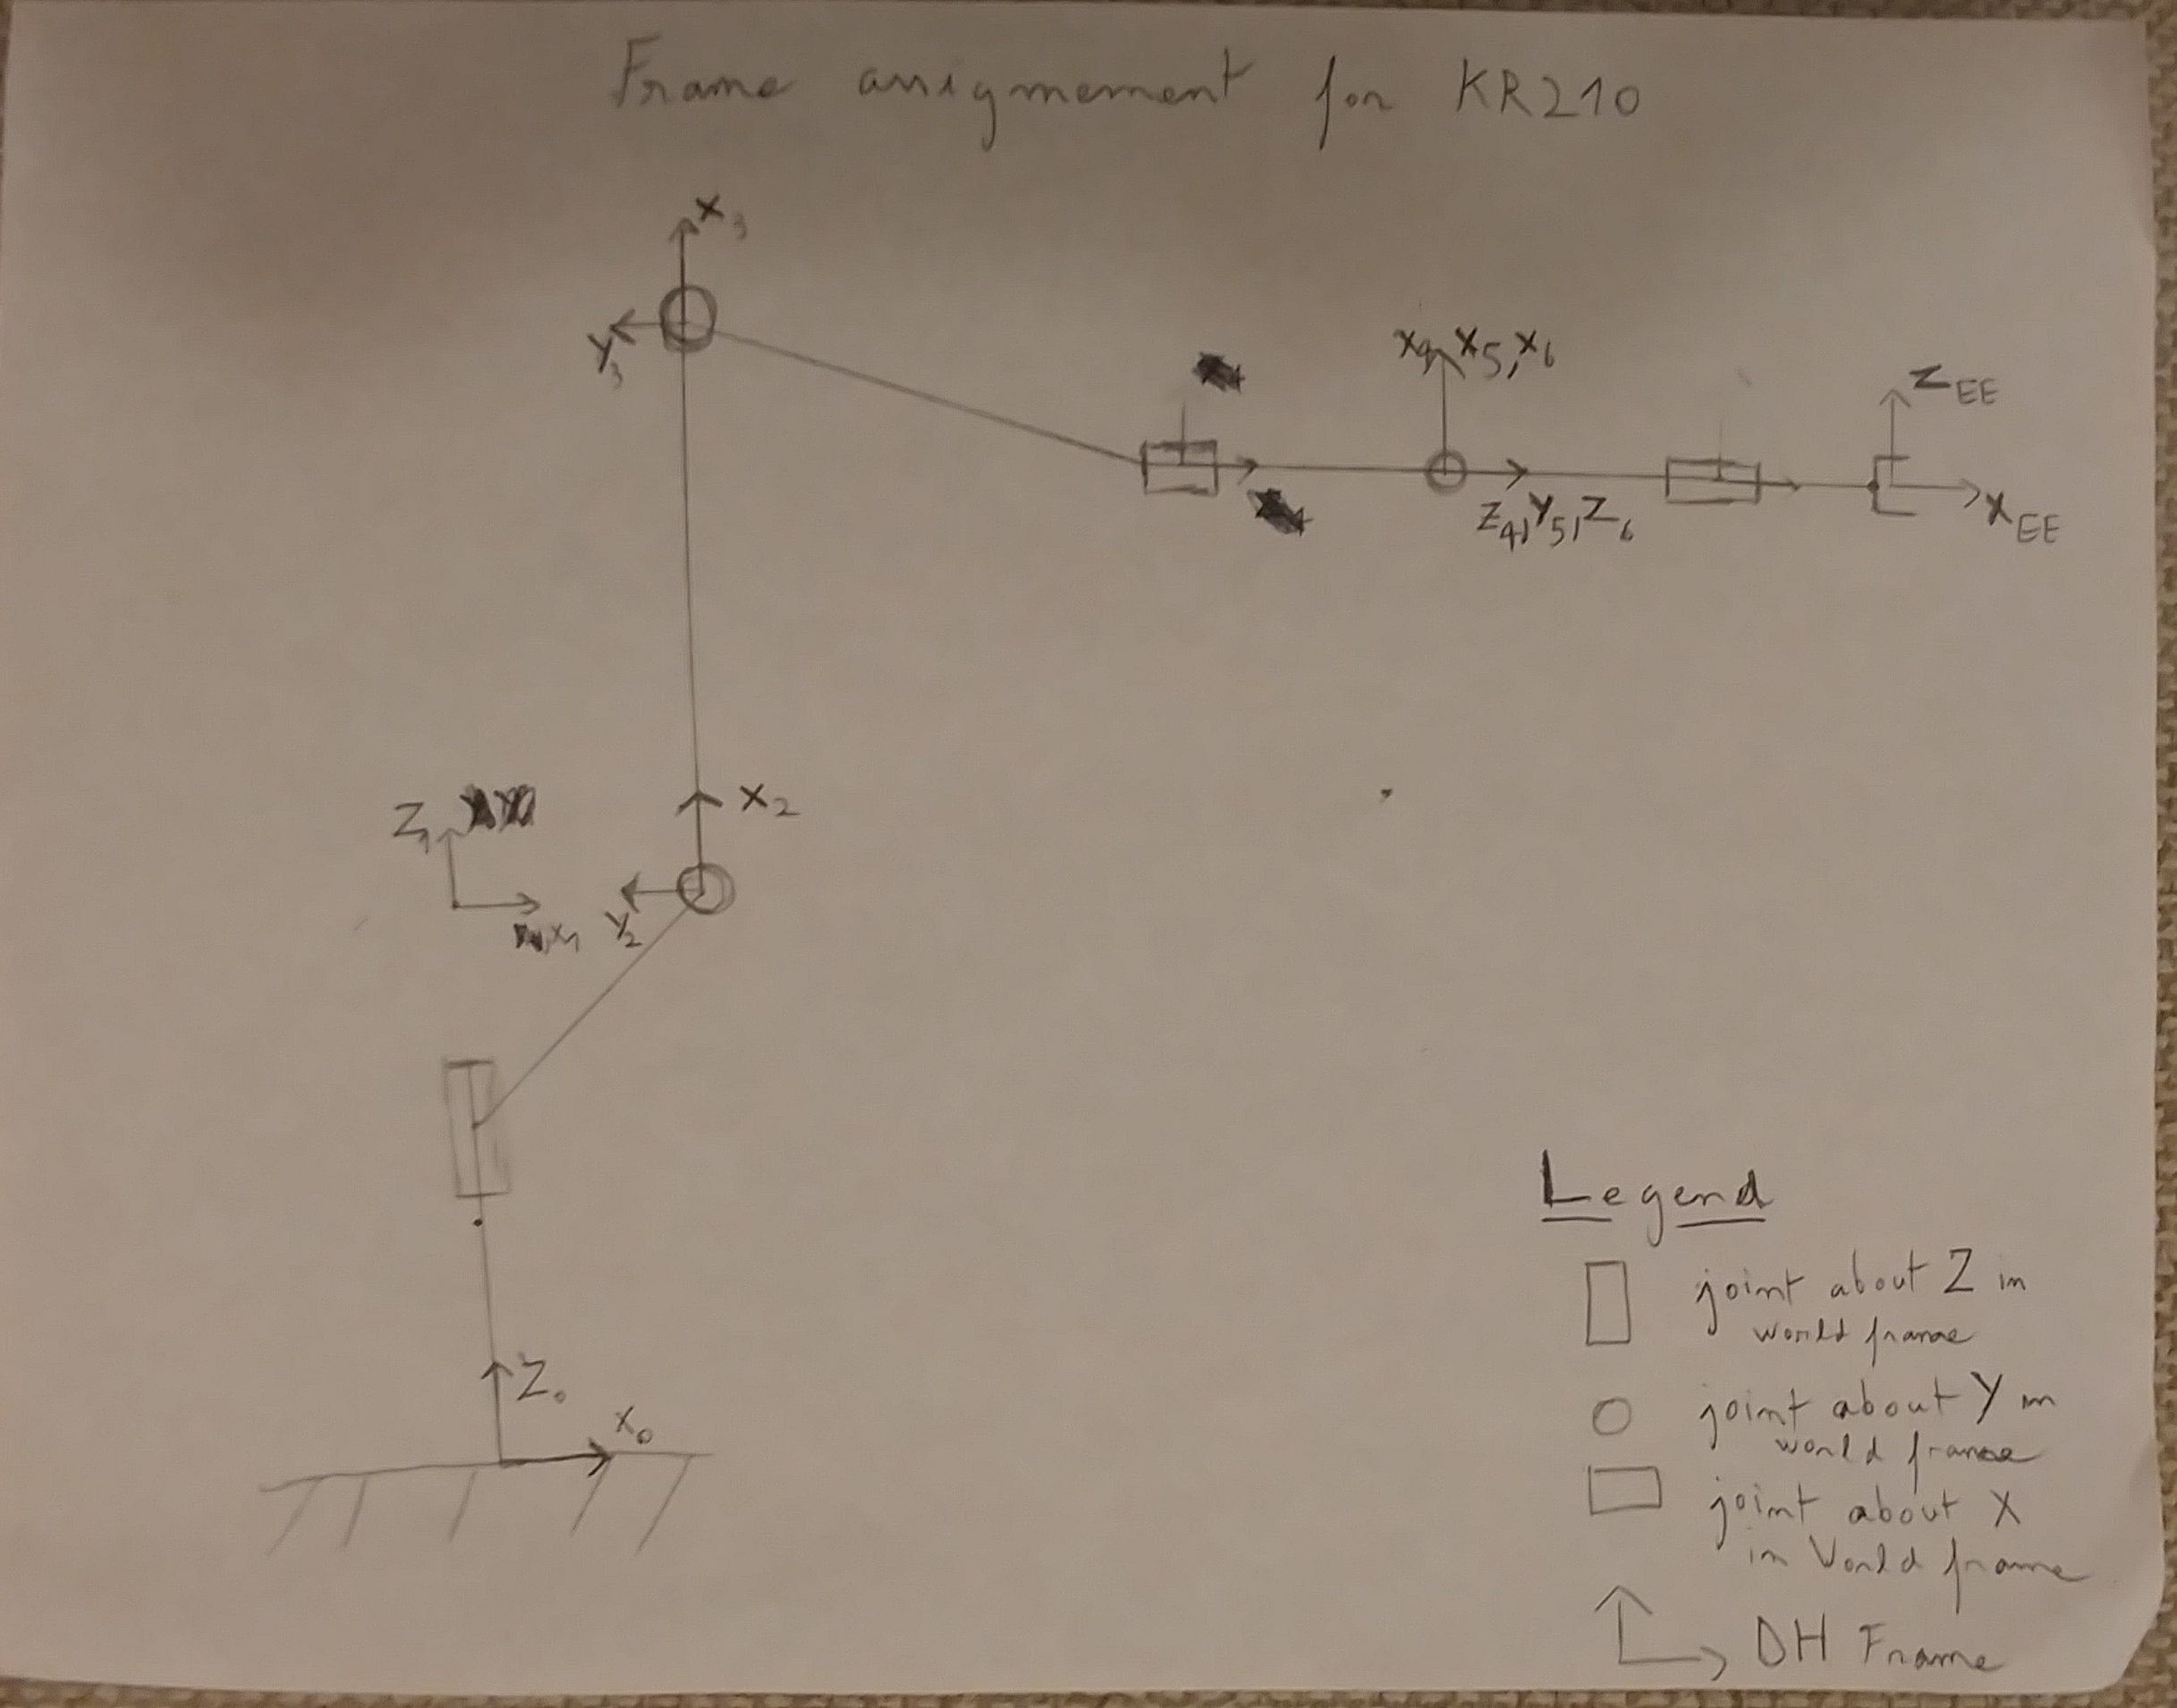 Frame assignement for KR210
X3
Y3
X4, X5, X6
Z4, Y5, Z6
ZEE
XEE
Z1
X1
X2
Y2
Z0
X0
Legend
joint about Z in
world frame
joint about Y in
world frame
joint about X
in World frame
DH Frame